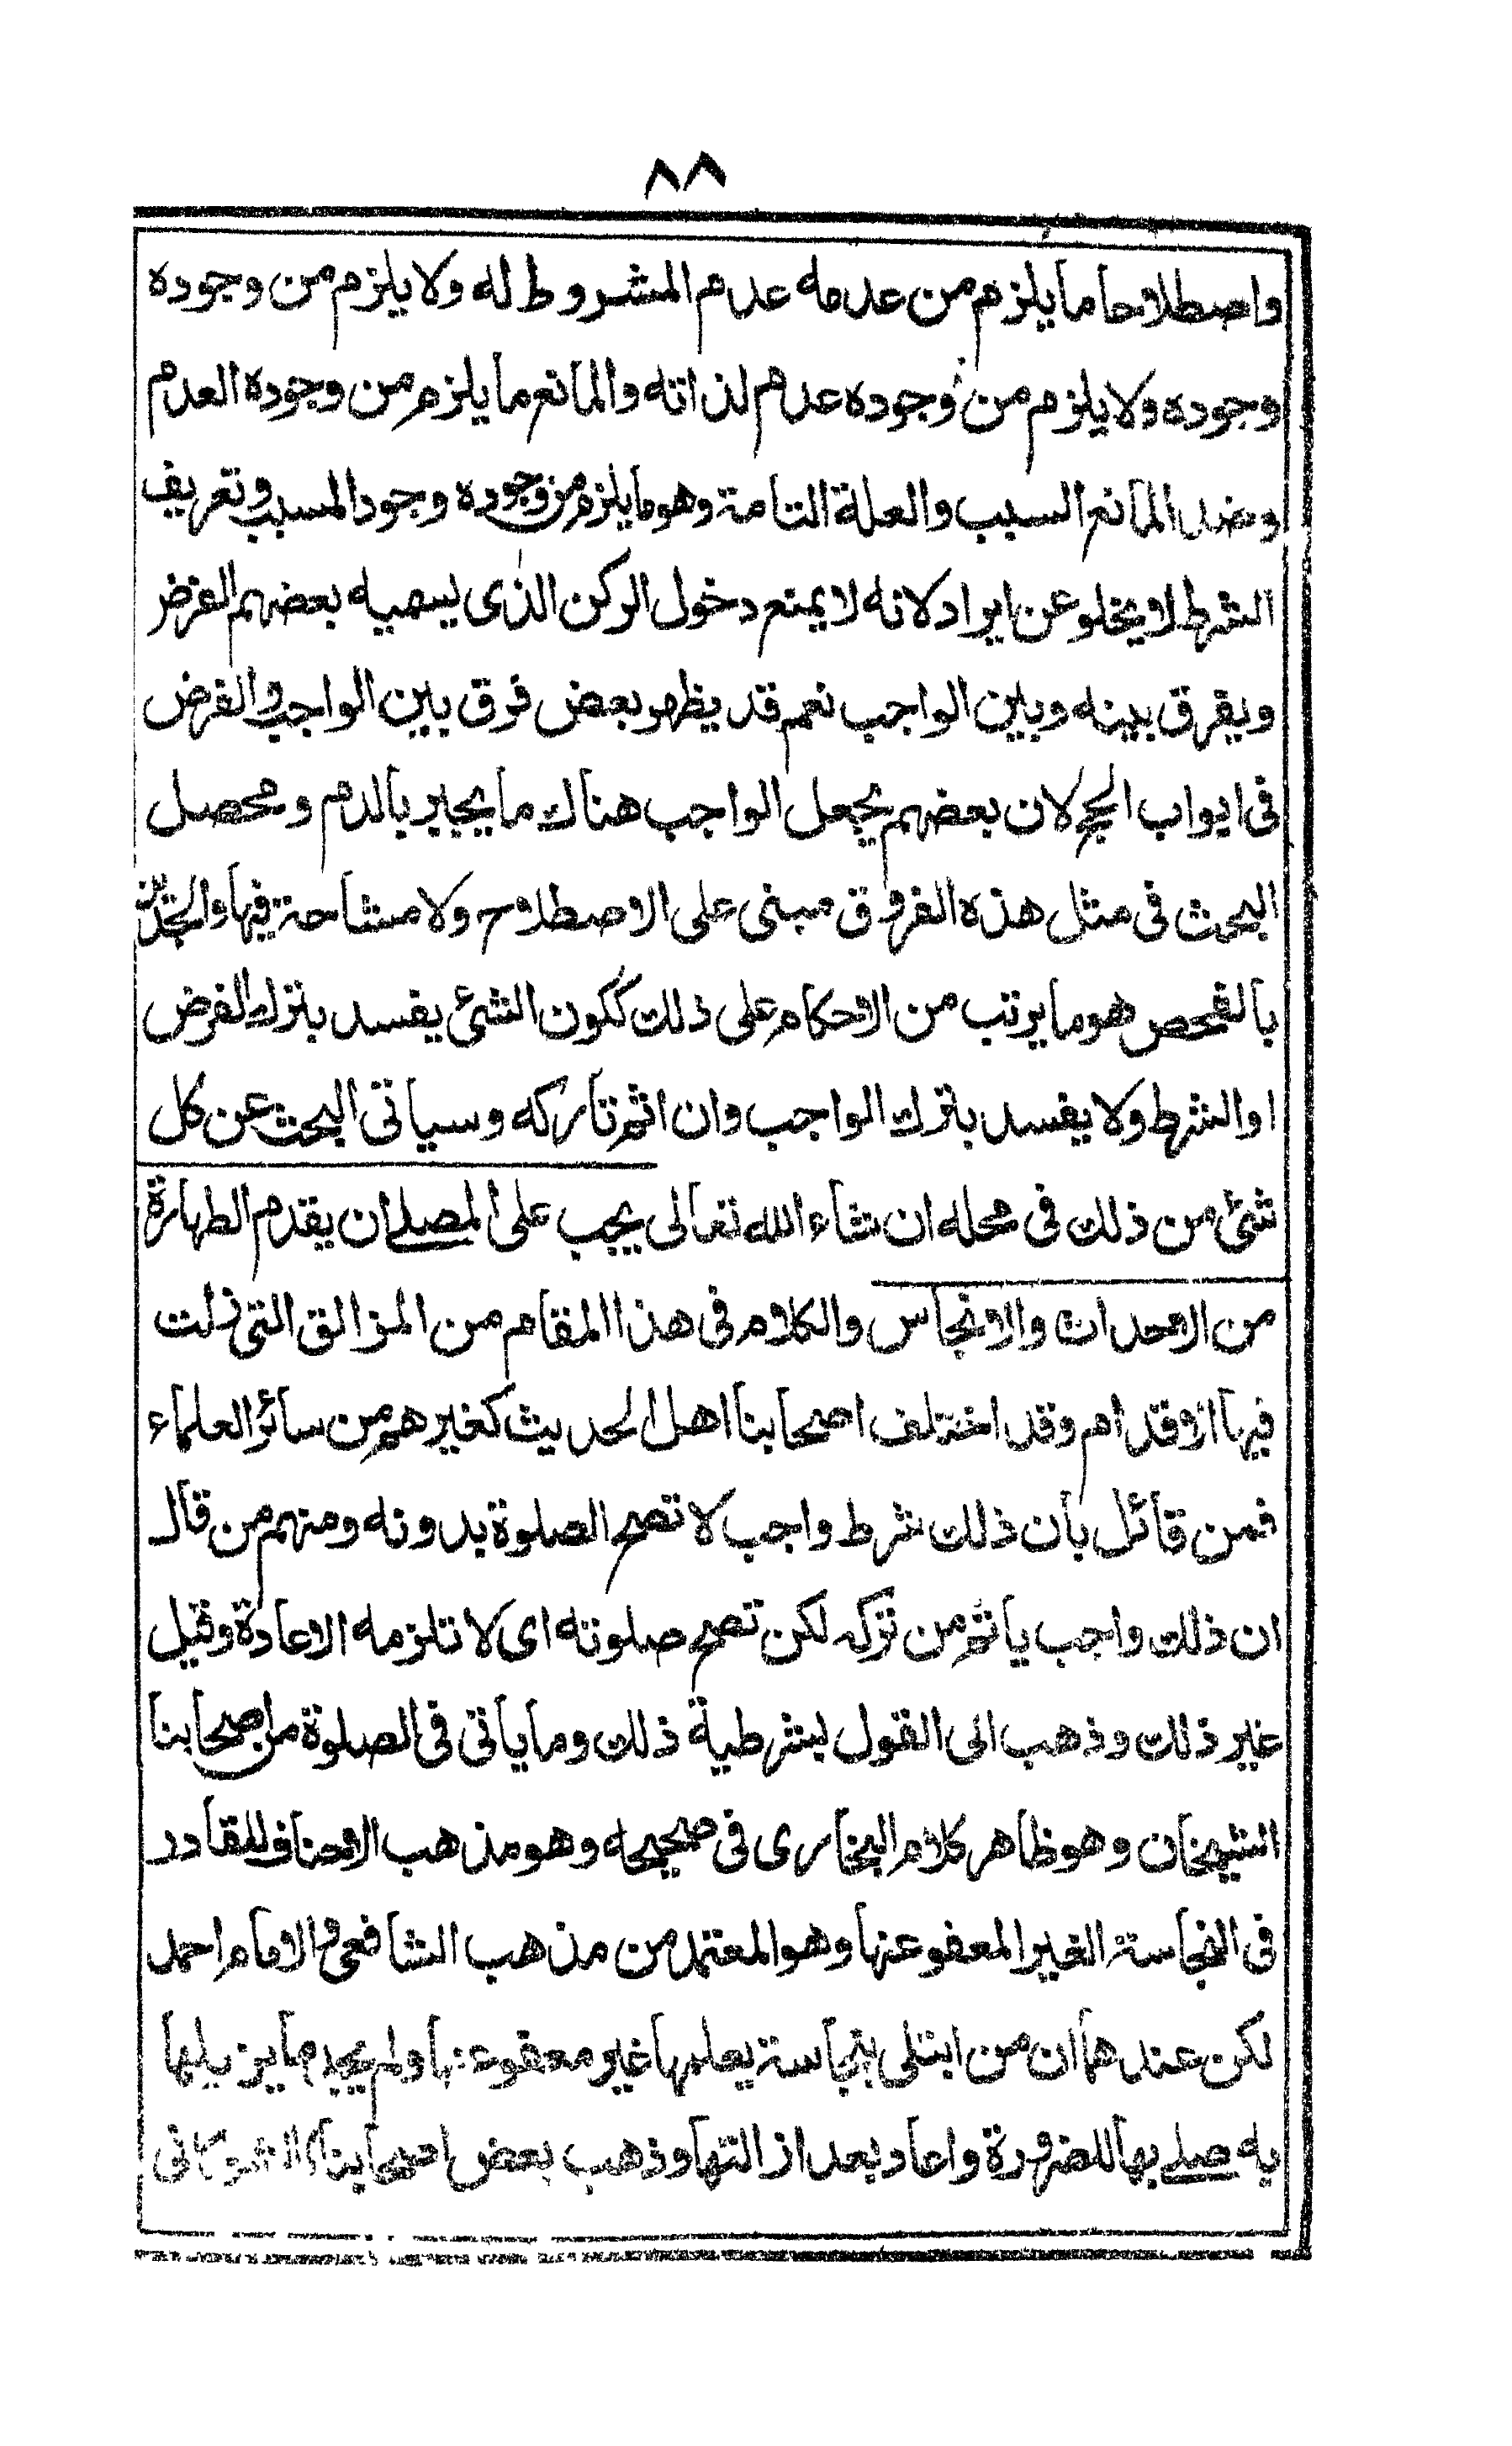 ٨٨
واصطلاحا ما يلزم من عدمه عدم المشروط له ولا يلزم من وجوده
وجوده ولا يلزم من وجوده عدم لذاته والمانع ما يلزم من وجوده العدم
وضد المانع السبب والعلة التامة وهو ما يلزم من وجوده وجود المسبب وتعريف
الشرط لا يخلو عن ايراد لانه لا يمنع دخول الركن الذى يسميه بعضهم الفرض
ويفرق بينه وبين الواجب نعم قد يظهر بعض فرق بين الواجب والفرض
فى ابواب الحج لان بعضهم يجعل الواجب هناك ما يجبر بالدم ومحصل
البحث فى مثل هذه الفروق مبنى على الاصطلاح ولا مشاحة فيها والجدير
بالفحص هو ما يرتب من الاحكام على ذلك ككون الشئ يفسد بترك الفرض
او الشرط ولا يفسد بترك الواجب وان اثم تاركه وسياتى البحث عن كل
شئ من ذلك فى محله ان شاء الله تعالى يجب على المصلے ان يقدم الطهارة
من الاحداث والانجاس والكلام فى هذا المقام من المزالق التى زلت
فيها الاقدام وقد اختلف اصحابنا اهل الحديث كغيرهم من سائر العلماء
فمن قائل بان ذلك شرط واجب لا تصح الصلوة بدونه ومنهم من قال
ان ذلك واجب ياثم من تركه لكن تصح صلوته اى لا تلزمه الاعادة وقيل
غير ذلك وذهب الى القول بشرطية ذلك وما ياتى فى الصلوة من اصحابنا
الشيخان وهو ظاهر كلام البخارى فى صحيحه وهو مذهب الاحناف للقادر
فى النجاسة الغير المعفو عنها وهو المعتمد من مذهب الشافعى والامام احمد
لكن عندهما ان من ابتلى بنجاسة يعلمها غير معفو عنها ولم يجد ما يزيلها
به صلے بها للضرورة واعاد بعد ازالتها وذهب بعض اصحابنا كالشوكانى